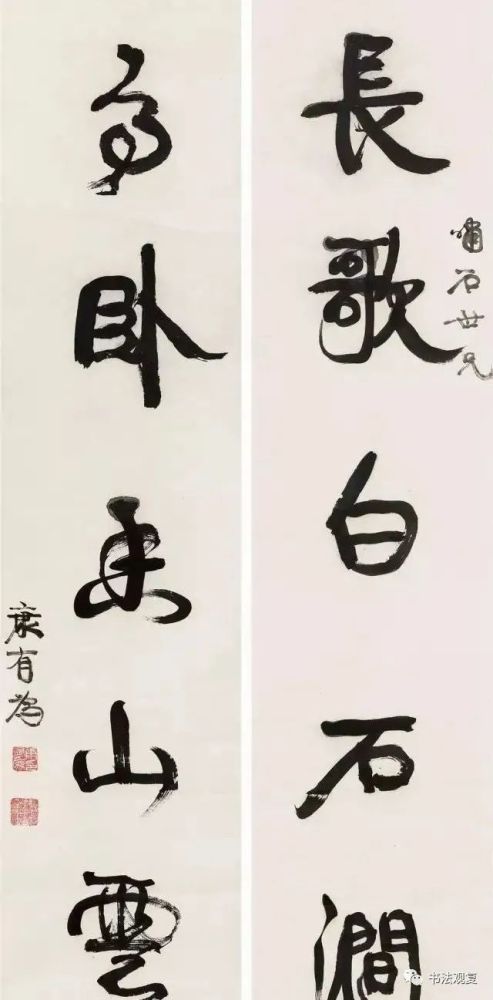 嘯石世兄
長歌白石澗
高卧 山雲
康有為
书法观复